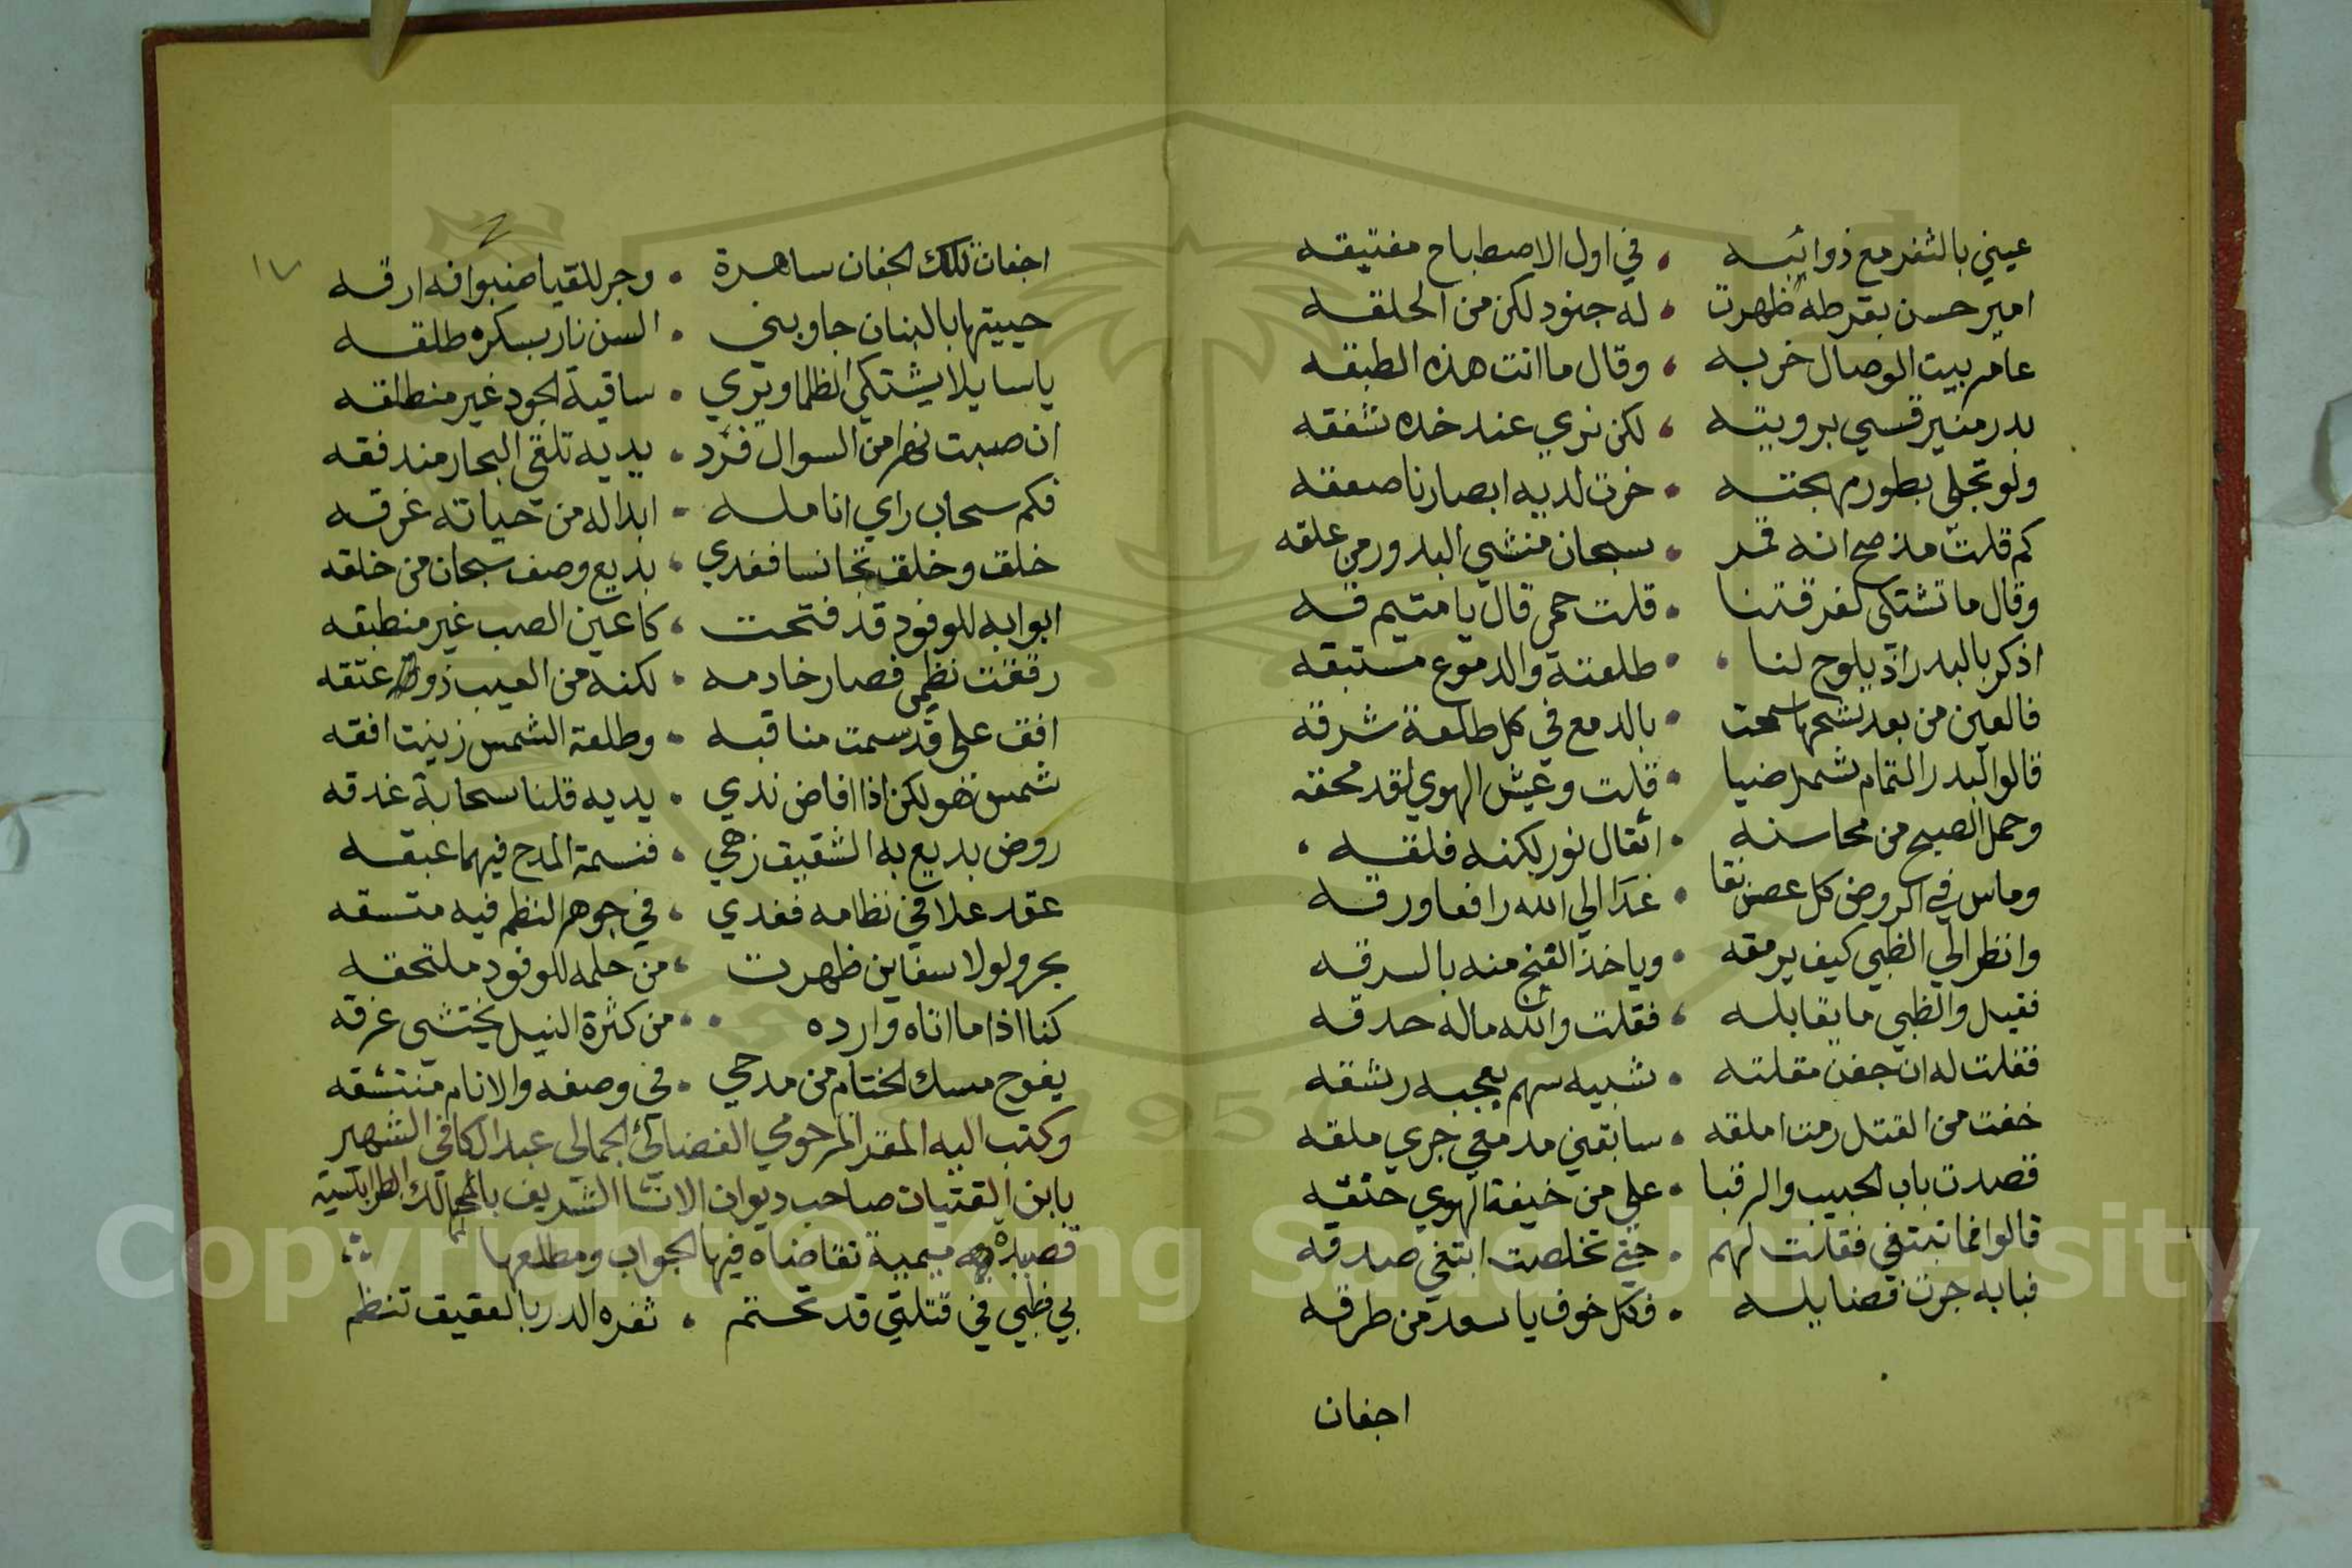 عيني بالثغر مع ذوائبه ، في اول الاصطباح مفتيقه
امير حسن بقرطه ظهرت ، له جنود لكن من الحلقه
عامر بيت الوصال خربه ، وقال ما انت هذه الطبقه
بدر منير قسي برويته ، لكن نري عند خده شفقه
ولو تجلى بطور مهجته ، خرت لديه ابصارنا صعقه
كم قلت مذ صح انه قمر ، سبحان منشي البدور من علقه
وقال ما تشتكي لفرقتنا ، قلت حمى قال يا متيم قه
اذكر بالبدر اذ يلوح لنا ، طلعته والدموع مستبقه
فالعين من بعد شحها سمحت ، بالدمع في كل طلعة شرقه
قالوا البدر التمام شمل ضيا ، قلت وعيش الهوي لقد محقه
وحمل الصبح من محاسنه ، اثقال نور لكنه فلقه
وماس في الروض كل غصن نقا ، غدا الي الله رافعا ورقه
وانظر الي الظبي كيف يرمقه ، وياخذ الغنج منه بالسرقه
فقيل والظبي ما يقابله ، فقلت والله ماله حدقه
فقلت له ان جفن مقلته ، شبيه سهم بعجبه رشقه
خفت من القتل رمت املقه ، سابقني مدمعي جري ملقه
قصدت باب الحبيب والرقبا ، على من خيفة الهوي حنقه
قالوا فما تبتغي فقلت لهم ، حتي تخلصت ابتغي صدقه
فبابه جرت فضايله ، فكل خوف يا سعد من طرقه
اجفان
١٧
اجفان تلك الجفان ساهرة ، وجر للقيا ارقه
حييتها بالبنان جاوبني ، السن نار بسكره طلقه
يا سايلا يشتكي الظما ويري ، ساقية الجود غير منطلقه
ان صببت نهرا من السوال فرد ، يديه تلقى البحار مندفقه
فكم سحاب راي انامله ، ابدا له من حياته غرقه
خلق وخلق تجانسا فغدي ، بديع وصف سبحان من خلقه
ابوابه للوفود قد فتحت ، كاعين الصب غير منطبقه
رققت نظمي فصار خادمه ، لكنه من العيب ذو عتقه
افق على قد سمت مناقبه ، وطلعة الشمس زينت افقه
شمس ضحو لكن اذا افاض ندي ، يديه قلنا سحابة غدقه
روض بديع به الشقيق زهي ، فنسمة المدح فيهما عبقه
عقد علا في نظامه فغدي ، في جوهر النظم فيه متسقه
بحر ولولا سفاين ظهرت ، من حلمه للوفود ملتحقه
كنا اذا ما اتاه وارده ، من كثرة النيل يختشي غرقه
يفوح مسك الختام من مدحي ، في وصفه والانام منتشقه
وكتب اليه المقر المرحومي القضائي الجمالي عبد الكافي الشهير
بابن القتيات صاحب ديوان الانشا الشريف بالممالك الطرابلسية
قصيدة ميمية تقاضاه فيها الجواب ومطلعها
بي ظبي في قتلتي قد تحتم ، ثغره الدر بالعقيق تنظم